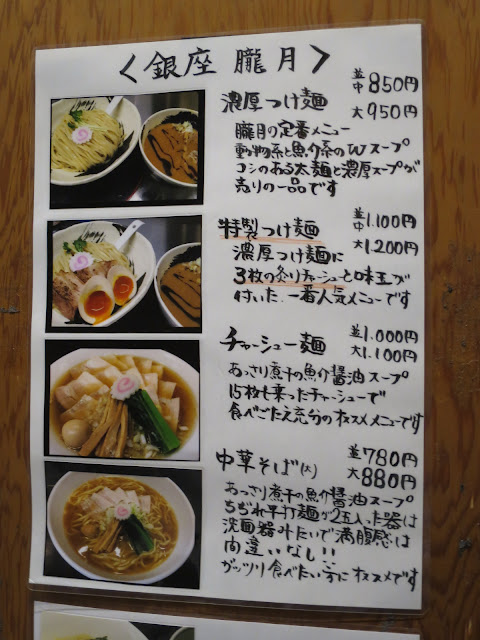 〈銀座 朧月〉
濃厚つけ麺
並中850円
大950円
朧月の定番メニュー
動物系と魚介系のWスープ
コシのある太麺と濃厚スープが
売りの一品です
特製つけ麺
並中1.100円
大1.200円
濃厚つけ麺に
3枚の炙りチャーシューと味玉が
付いた、一番人気メニューです
チャーシュー麺
並1.000円
大1.100円
あっさり煮干の魚介醤油スープ
15枚も乗ったチャーシューで
食べごたえ充分のオススメメニューです
中華そば(大)
並780円
大880円
あっさり煮干の魚介醤油スープ
ちぢれ平打麺が2玉入った器は
洗面器みたいで満腹感は
間違いなし!!
ガッツリ食べたい方にオススメです